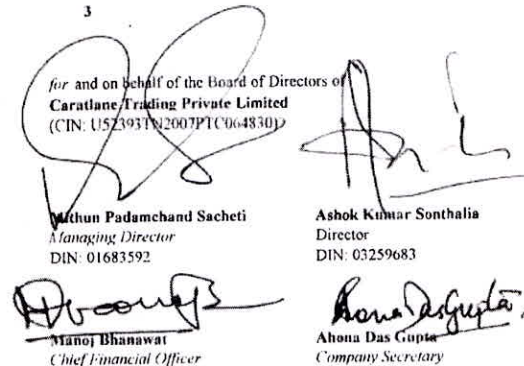 3
for and on behalf of the Board of Directors of
Caratlane Trading Private Limited
(CIN: U52393TN2007PTC064830)
Mithun Padamchand Sacheti
Managing Director
DIN: 01683592
Ashok Kumar Sonthalia
Director
DIN: 03259683
Manoj Bhanawat
Chief Financial Officer
Ahona DasGupta
Ahona Das Gupta
Company Secretary